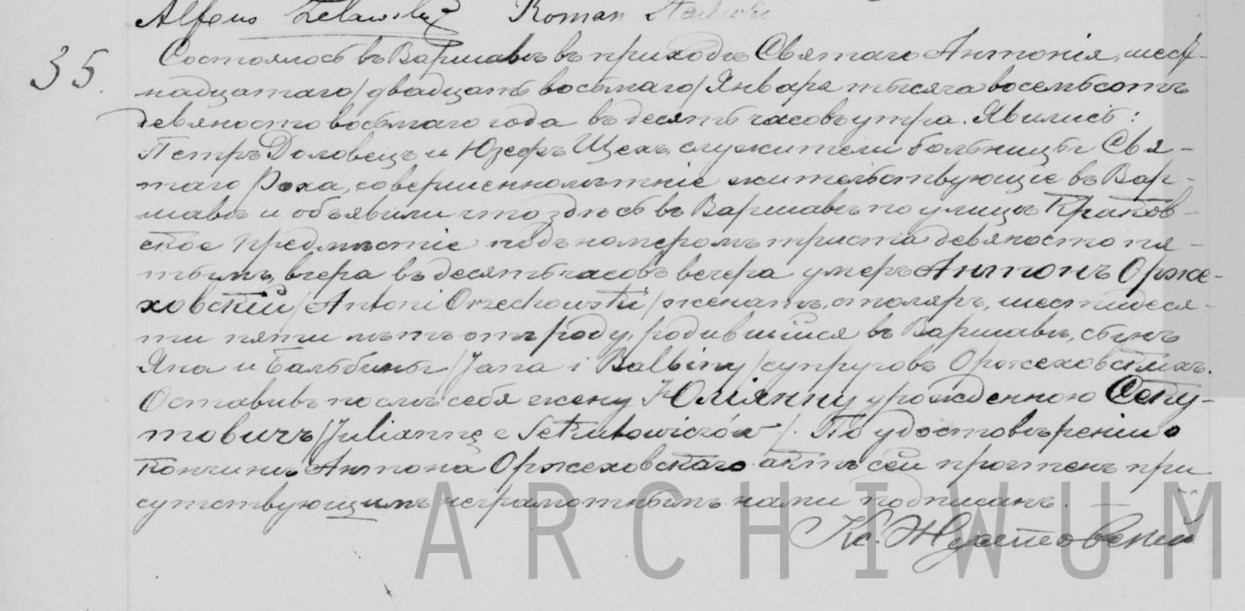 Alfons Roman
35.
Состоялось въ Варшавѣ въ приходѣ Святаго Антонія, шест-
надцатаго /двадцать восьмаго/ Января тысяча восемьсотъ
девяносто восьмаго года въ десять часовъ утра. Явились:
Петръ Доловецъ и Юзефъ Щехъ, служители больницы Свя-
таго Роха, совершеннолѣтніе жительствующіе въ Вар-
шавѣ и объявили что здѣсь въ Варшавѣ по улицѣ Краков-
ское предмѣстіе подъ номеромъ триста девяносто пя-
тымъ, вчера въ десять часовъ вечера умеръ Антонъ Орже-
ховскій /Antoni Orzechowski/ женатъ, столяръ, шестидеся-
ти пяти лѣтъ отъ роду, родившійся въ Варшавѣ, сынъ
Яна и Бальбины /Jana i Balbiny/ супруговъ Оржеховскихъ.
Оставивъ послѣ себя жену Юліянну урожденную
/Juliannę z /. По удостовѣреніи о
кончинѣ Антона Оржеховскаго актъ сей прочтенъ при
сутствующимъ неграмотнымъ нами подписанъ.
Кс.
ARCHIWUM